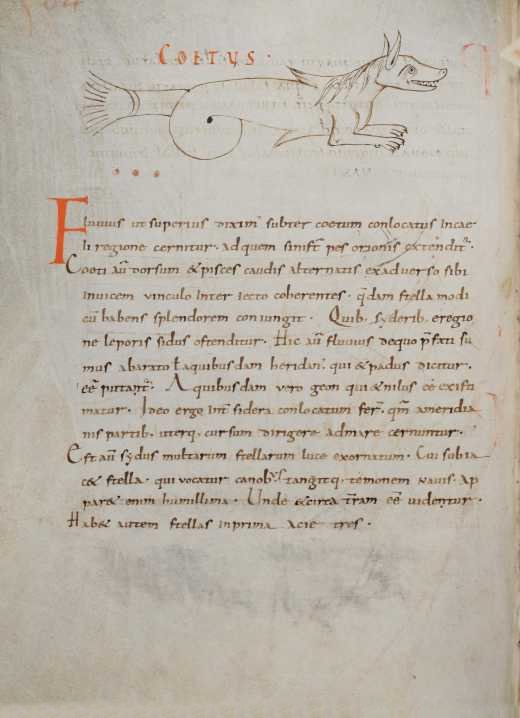 COETUS ·
Fluuius ut superius diximꝰ subter coetum conlocatus in cae
li regione cernitur · ad quem sinistr̄ pes orionis extenditᷣ ·
Coeti aū dorsum & pisces caudis alternatis ex aduerso sibi
inuicem uinculo inter iecto coherentes · quȩdam stella modi
cū habens splendorem coniungit · Quib; syderib; e regio
ne leporis sidus ostenditur · Hic aū fluuius de quo p̄fati su
mus ab arato ł a quibusdam heridanꝰ, qui & padus dicitur,
eē putantᷣ · A quibusdam uero geon qui & nilus ēe existi
matur · Ideo ergo int̄ sidera conlocatum ferᷣ, qm̄ a meridia
nis partib; uterq; cursum dirigere ad mare cernuntur ·
Est aū sydus multarum stellarum luce exornatum · Cui subia
c& stella · qui uocatur canobꝰ, & tangitq; temonem nauis · Ap
par& enim humillima · Unde & circa t̄ram eē uidentur ·
Hab& autem stellas in prima acie tres ·